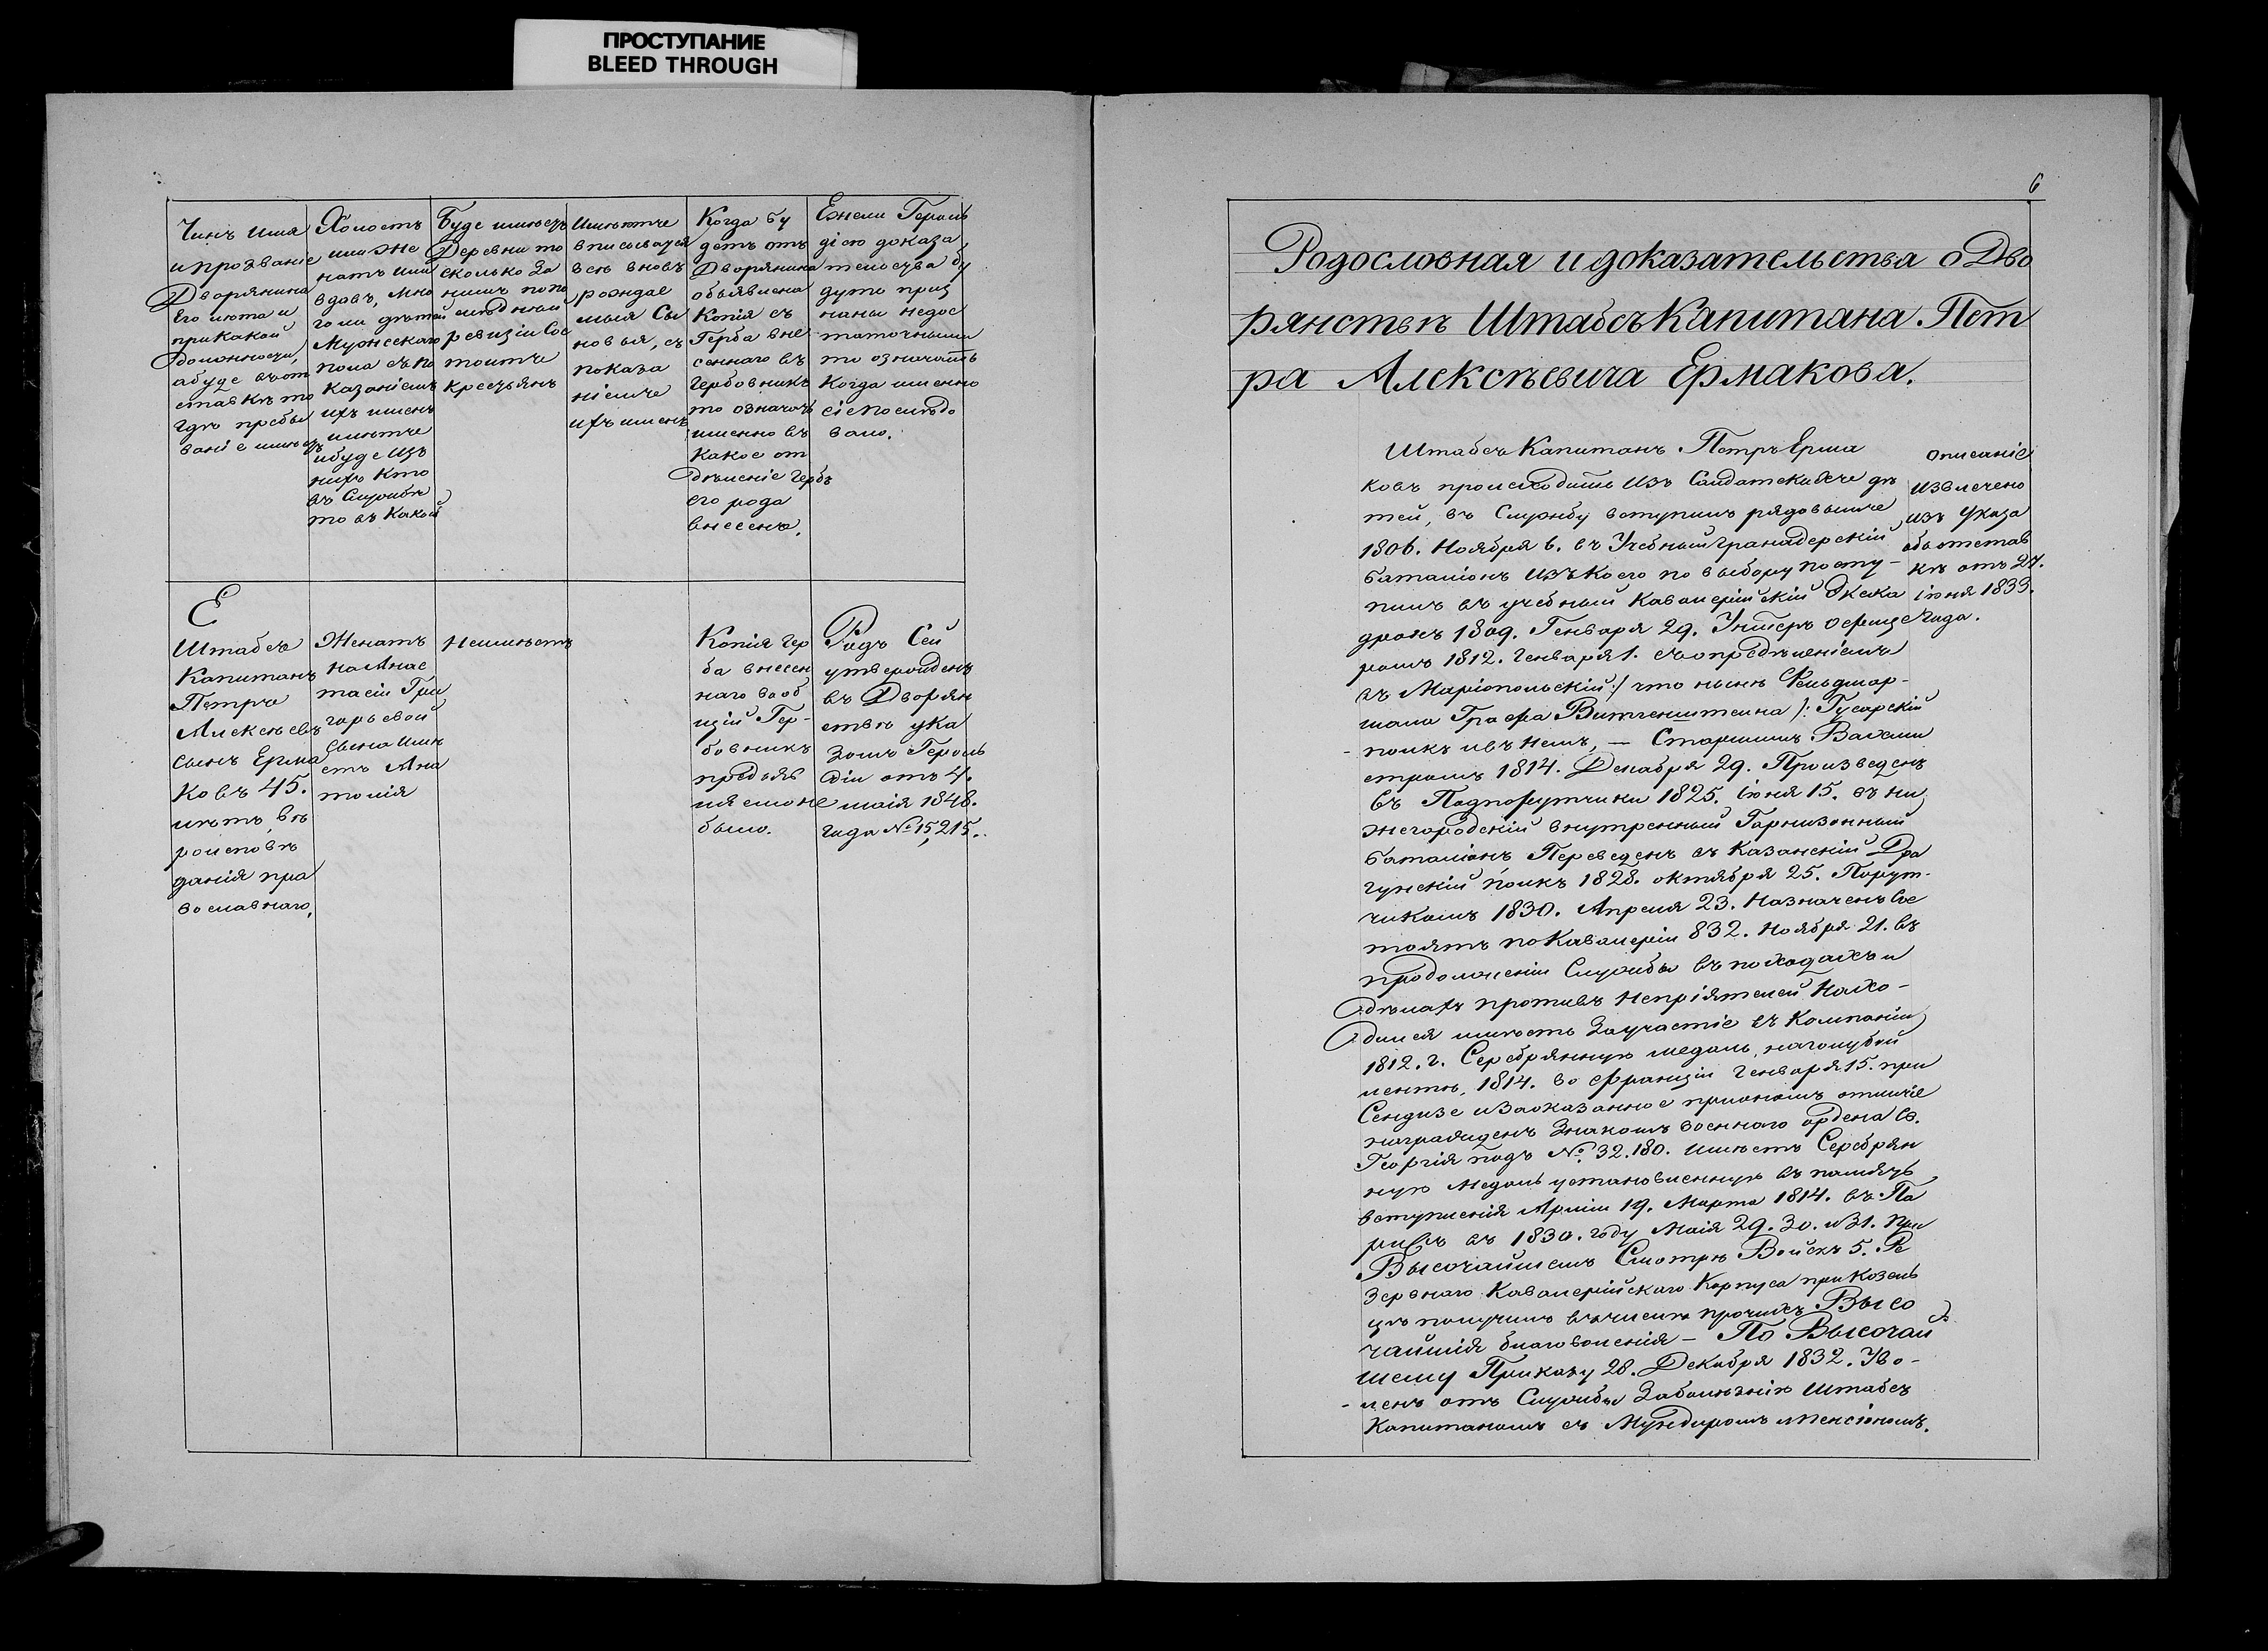 ПРОСТУПАНИЕ
BLEED THROUGH
Чинъ имя
и прозваніе
Дворянина
Его лѣта и
при какой
должности,
а буде въ от
ставкѣ то
гдѣ пребы
ваніе имѣетъ
Холостъ
или же
натъ или
вдовъ, мно
го ли дѣтей
Мужескаго
пола съ по
казаніемъ
ихъ именъ
имѣтче
и буде изъ
нихъ кто
въ Службѣ
то въ какой
Буде имѣетъ
Деревни то
сколько За
нимъ по по
слѣдней
ревизіи Сос
тоитче
крестьянъ
Имѣютче
вписыватся
всѣ вновь
рождае
мыя Сы
новья, съ
показа
ніемче
ихъ именъ
Когда бу
детъ отъ
Дворянина
объявлена
Копія съ
Герба вне
сеннаго въ
Гербовникъ
то означать
именно въ
какое от
дѣленіе Гербъ
его рода
внесенъ.
Ежели Героль
дією доказа
тельства бу
дутъ приз
наны недос
таточными
то означать
Когда именно
сіе послѣдо
вало.
Е
Штабсъ
Капитанъ
Петръ
Алексѣевъ
сынъ Ерма
ковъ 45.
лѣтъ, вѣ
роисповѣ
данія пра
вославнаго,
Женатъ
на Анас
тасіи Гри
горьевой
Сына имѣ
етъ Ана
толія
Неимѣетъ
Копія Гер
ба внесен
наго во об
щій Гер-
бовникъ
предъяв
ляемо не
было.
Родъ Сей
утвержденъ
въ Дворян
ствѣ ука
зомъ Героль
діи отъ 4.
маія 1848.
года № 15,215.
6
Родословная и доказательства о Дво
рянствѣ Штабсъ Капитана Пет
ра Алексѣевича Ермакова.
Штабсъ Капитанъ Петръ Ерма
ковъ происходитъ Изъ Салдатскихче дѣ
тей, въ Службу вступилъ рядовымче
1806. Ноября 6. въ Учебный гранадерскій
баталіонъ Изъ коего по выбору посту-
пилъ въ учебный Кавалерійскій Экска
дронъ 1809. Генваря 29. Унтеръ офице
ромъ 1812. Генваря 1. съ опредѣленіемъ
въ Маріопольскій:/ что нынѣ Фельдмар-
шала Графа Витгенштеина /: Гусарскій
полкъ и въ немъ, — Старшимъ Вахми
стромъ 1814. Декабря 29. Произведенъ
въ Подпорутчики 1825. Іюня 15. въ ни
жегородскій внутренный Гарнизонный
баталіонъ Переведенъ въ Казанскій Дра
гунскій полкъ 1828. октября 25. Порут-
чикомъ 1830. Апреля 23. Назначенъ Сос
тоять по Кавалеріи 832. Ноября 21. въ
продолженіи Службы въ походахъ и
дѣлахъ противъ Непріятелей Нахо-
дился имѣетъ За участіе въ Компаніи
1812. г. Серебрянную медаль, на голубой
лентѣ, 1814. во Франціи Генваря 15. при
Сендизе и За оказанное при ономъ отличіе
награжденъ Знакомъ военнаго ордена Св.
Георгія подъ № 32.180. имѣетъ Серебрян
ную Медаль установленную въ память
вступленія Арміи 19. Марта 1814. въ Па
рижъ въ 1830. году Маія 29. 30. и 31. При
Высочайшемъ Смотрѣ Войскъ 5. Ре
зервнаго Кавалерійскаго Корпуса при Козель
цѣ получилъ въ числѣ прочихъ Высо
чайшія благоволенія — По Высочай
шему Приказу 28. Декабря 1832. Уво-
ленъ отъ Службы За болѣзнію Штабсъ
Капитаномъ съ Мундиромъ и Пенсіономъ.
Описаніе
извлечено
изъ Указа
объ отстав
кѣ отъ 27.
іюня 1833.
года.